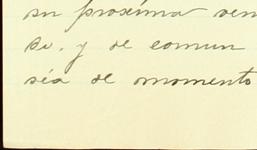 su proxima ven
do. y de comun
sea de momento